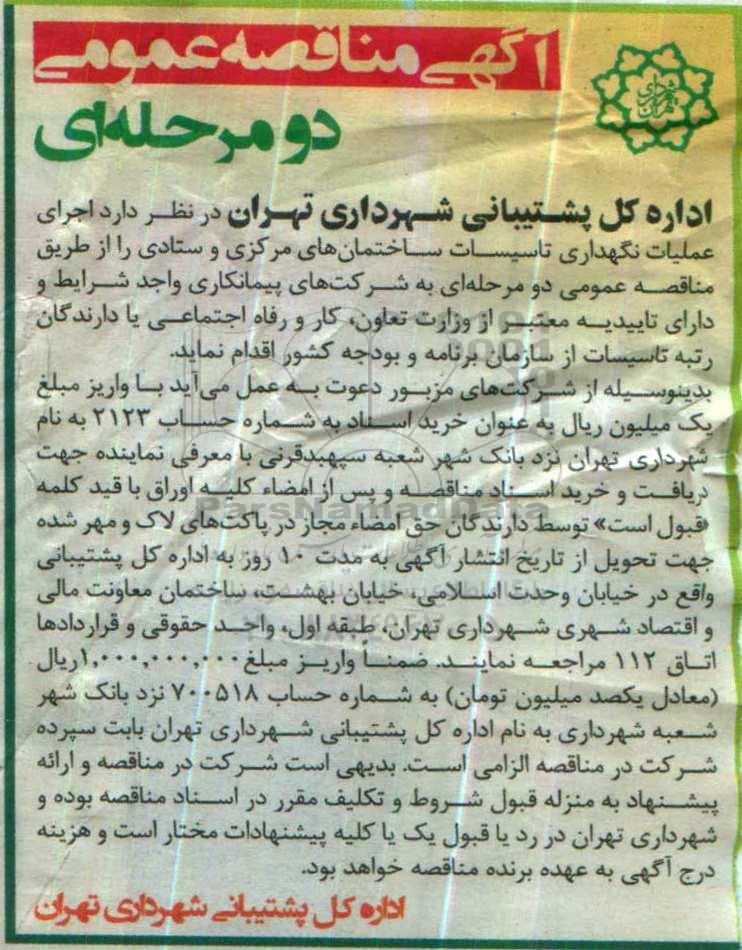 آگهی مناقصه عمومی
دو مرحله‌ای
شهرداری تهران
اداره کل پشتیبانی شهرداری تهران در نظر دارد اجرای
عملیات نگهداری تاسیسات ساختمان‌های مرکزی و ستادی را از طریق
مناقصه عمومی دو مرحله‌ای به شرکت‌های پیمانکاری واجد شرایط و
دارای تاییدیه معتبر از وزارت تعاون، کار و رفاه اجتماعی یا دارندگان
رتبه تاسیسات از سازمان برنامه و بودجه کشور اقدام نماید.
بدینوسیله از شرکت‌های مزبور دعوت به عمل می‌آید با واریز مبلغ
یک میلیون ریال به عنوان خرید اسناد به شماره حساب ۲۱۲۳ به نام
شهرداری تهران نزد بانک شهر شعبه سپهبدقرنی با معرفی نماینده جهت
دریافت و خرید اسناد مناقصه و پس از امضاء کلیه اوراق با قید کلمه
«قبول است» توسط دارندگان حق امضاء مجاز در پاکت‌های لاک و مهر شده
جهت تحویل از تاریخ انتشار آگهی به مدت ۱۰ روز به اداره کل پشتیبانی
واقع در خیابان وحدت اسلامی، خیابان بهشت، ساختمان معاونت مالی
و اقتصاد شهری شهرداری تهران، طبقه اول، واحد حقوقی و قراردادها
اتاق ۱۱۲ مراجعه نمایند. ضمنا واریز مبلغ ۱,۰۰۰,۰۰۰,۰۰۰ریال
(معادل یکصد میلیون تومان) به شماره حساب ۷۰۰۵۱۸ نزد بانک شهر
شعبه شهرداری به نام اداره کل پشتیبانی شهرداری تهران بابت سپرده
شرکت در مناقصه الزامی است. بدیهی است شرکت در مناقصه و ارائه
پیشنهاد به منزله قبول شروط و تکلیف مقرر در اسناد مناقصه بوده و
شهرداری تهران در رد یا قبول یک یا کلیه پیشنهادات مختار است و هزینه
درج آگهی به عهده برنده مناقصه خواهد بود.
اداره کل پشتیبانی شهرداری تهران
ParsNamadData